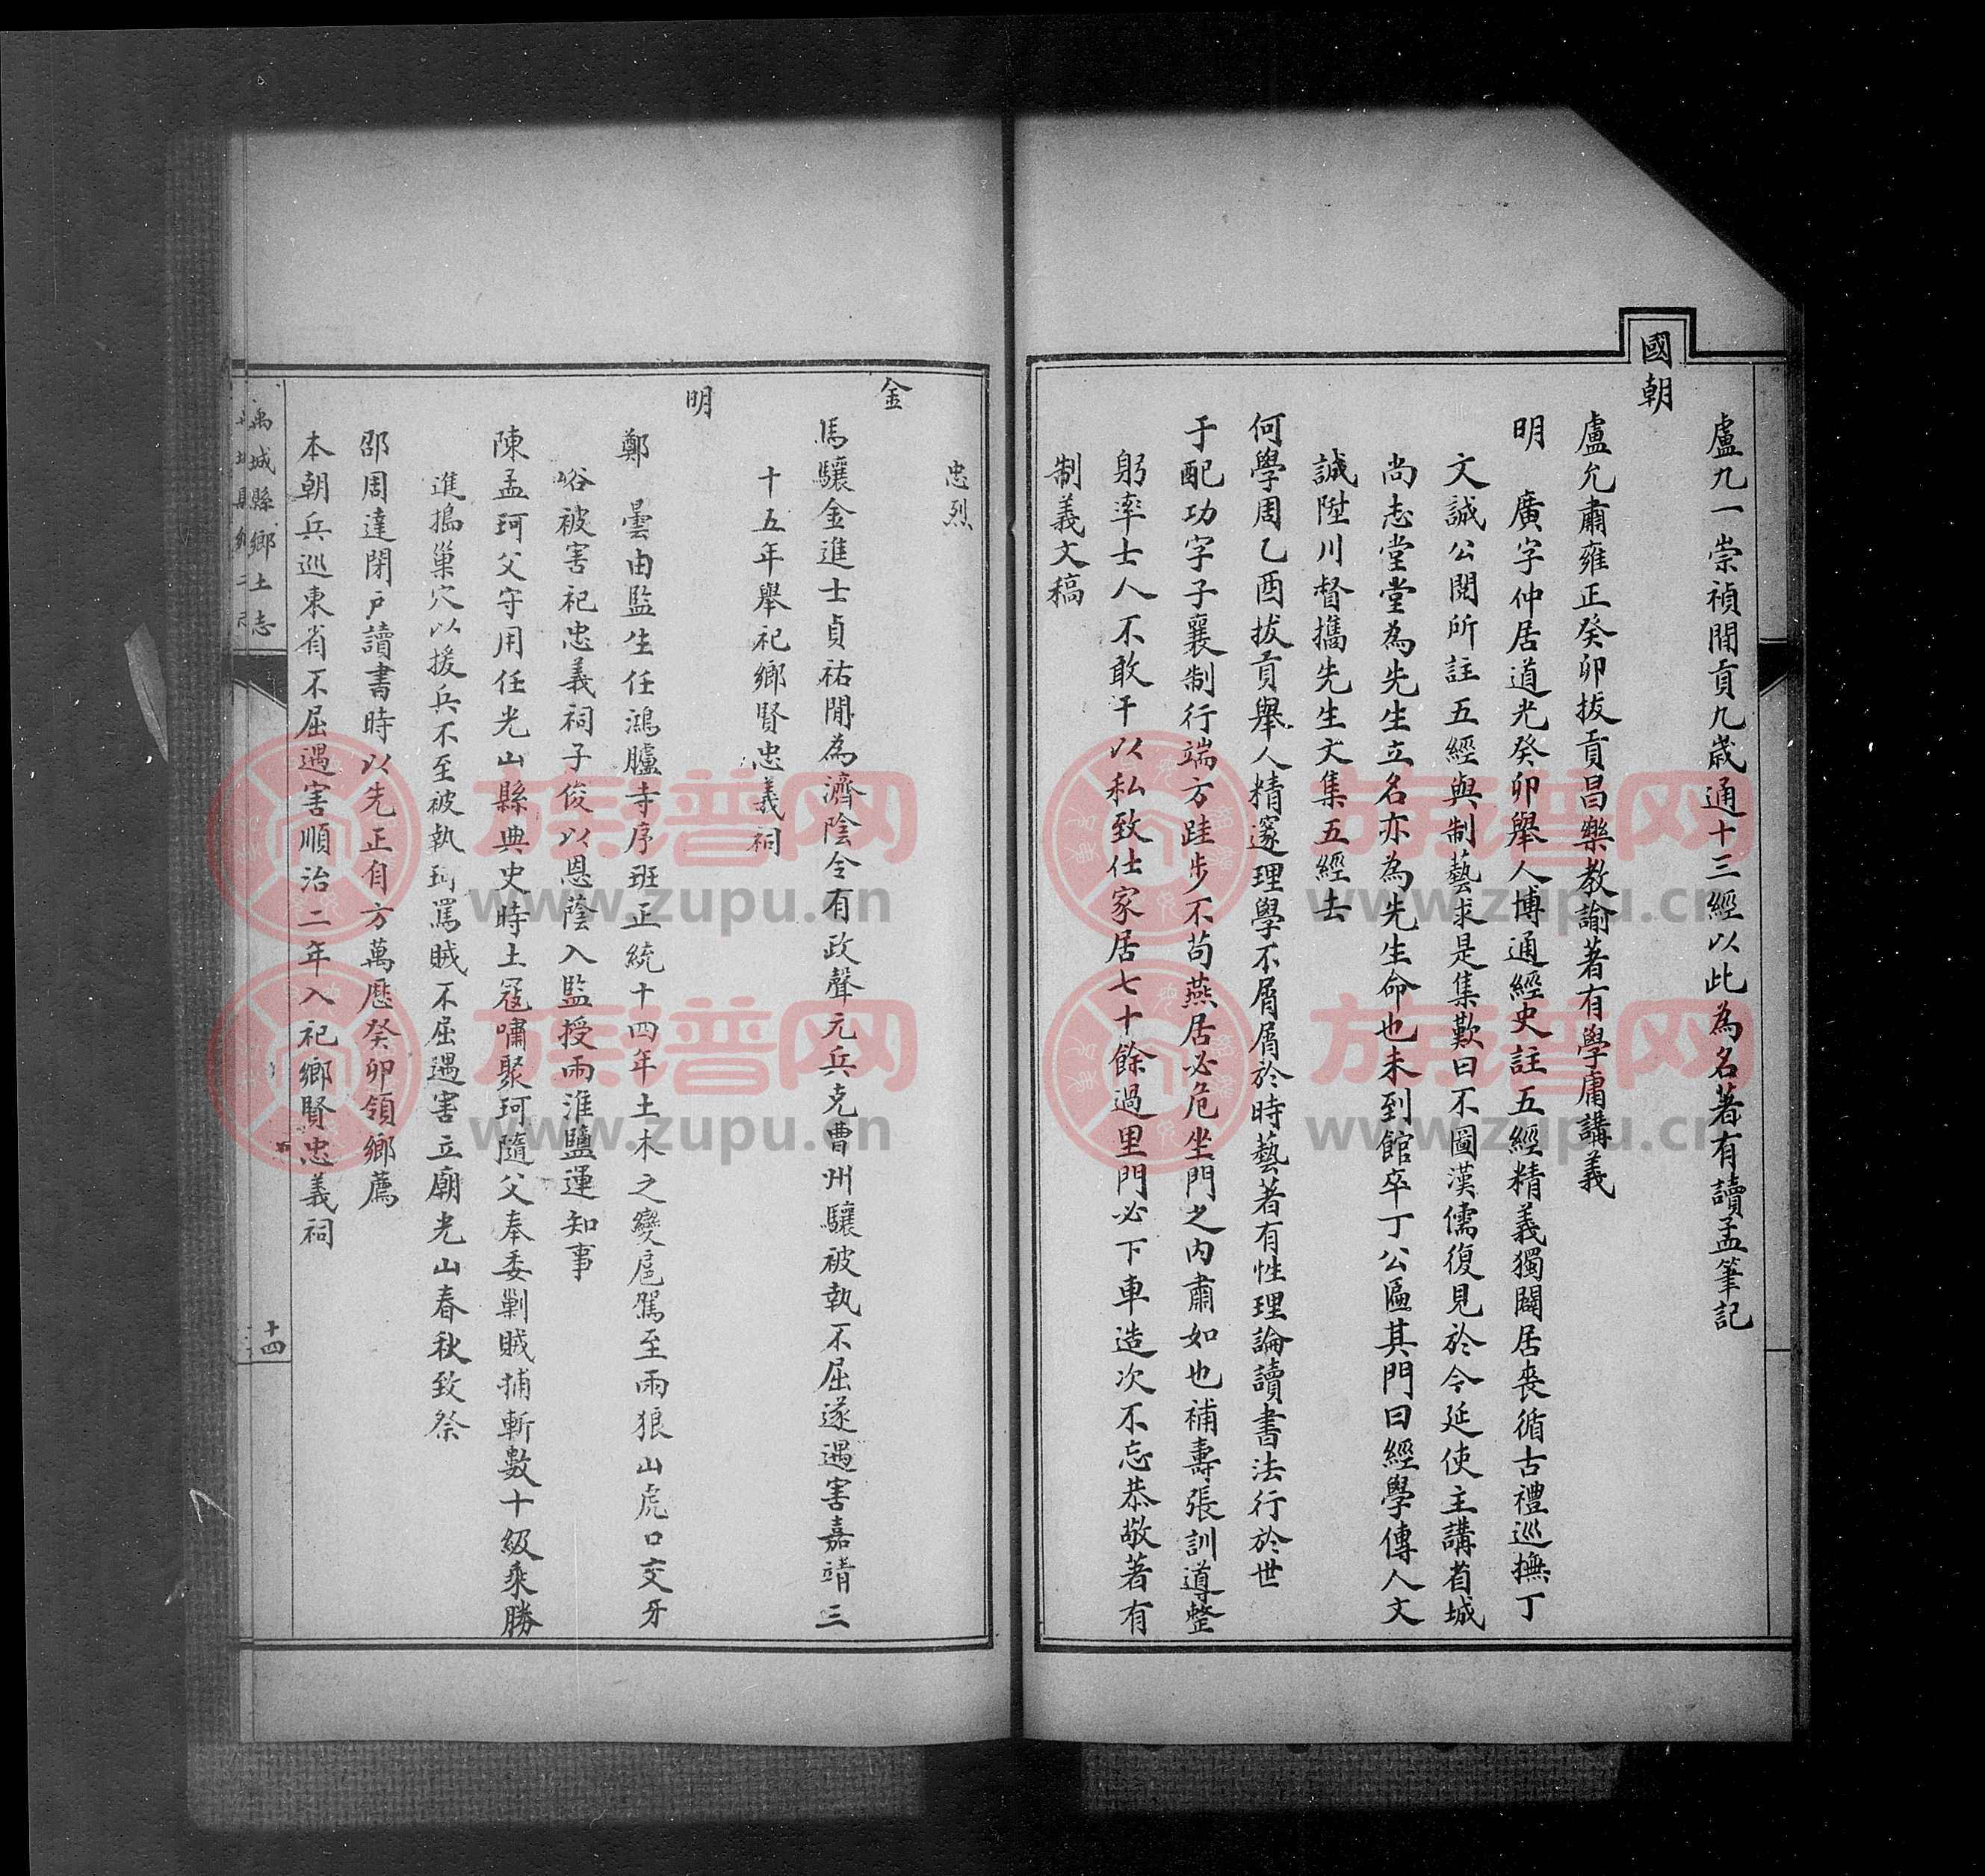 盧九一崇禎間貢九歲通十三經以此為名著有讀孟筆記
國朝
盧允肅雍正癸卯拔貢昌樂教諭著有學庸講義
明　廣字仲居道光癸卯舉人博通經史註五經精義獨闢居喪循古禮巡撫丁
文誠公閱所註五經與制藝求是集歎曰不圖漢儒復見於今延使主講省城
尚志堂堂為先生立名亦為先生命也未到館卒丁公匾其門曰經學傳人文
誠陞川督攜先生文集五經去
何學周乙酉拔貢舉人精邃理學不屑屑於時藝著有性理論讀書法行於世
于配功字子襄制行端方跬步不苟燕居必危坐門之內肅如也補壽張訓導整
躬率士人不敢干以私致仕家居七十餘過里門必下車造次不忘恭敬著有
制義文稿
忠烈
金
馬驤金進士貞祐閒為濟陰令有政聲元兵克曹州驤被執不屈遂遇害嘉靖三
十五年舉祀鄉賢忠義祠
明
鄭　曇由監生任鴻臚寺序班正統十四年土木之變扈駕至雨狼山虎口交牙
峪被害祀忠義祠子俊以恩蔭入監授兩淮鹽運知事
陳孟珂父守用任光山縣典史時土寇嘯聚珂隨父奉委剿賊捕斬數十級乘勝
進搗巢穴以援兵不至被執珂罵賊不屈遇害立廟光山春秋致祭
邵周達閉戶讀書時以先正自方萬歷癸卯領鄉薦
本朝兵巡東省不屈遇害順治二年入祀鄉賢忠義祠
禹城縣鄉土志
十四
族谱网
www.zupu.cn
族谱网
www.zupu.cn
族谱网
www.zupu.cn
族谱网
www.zupu.cn